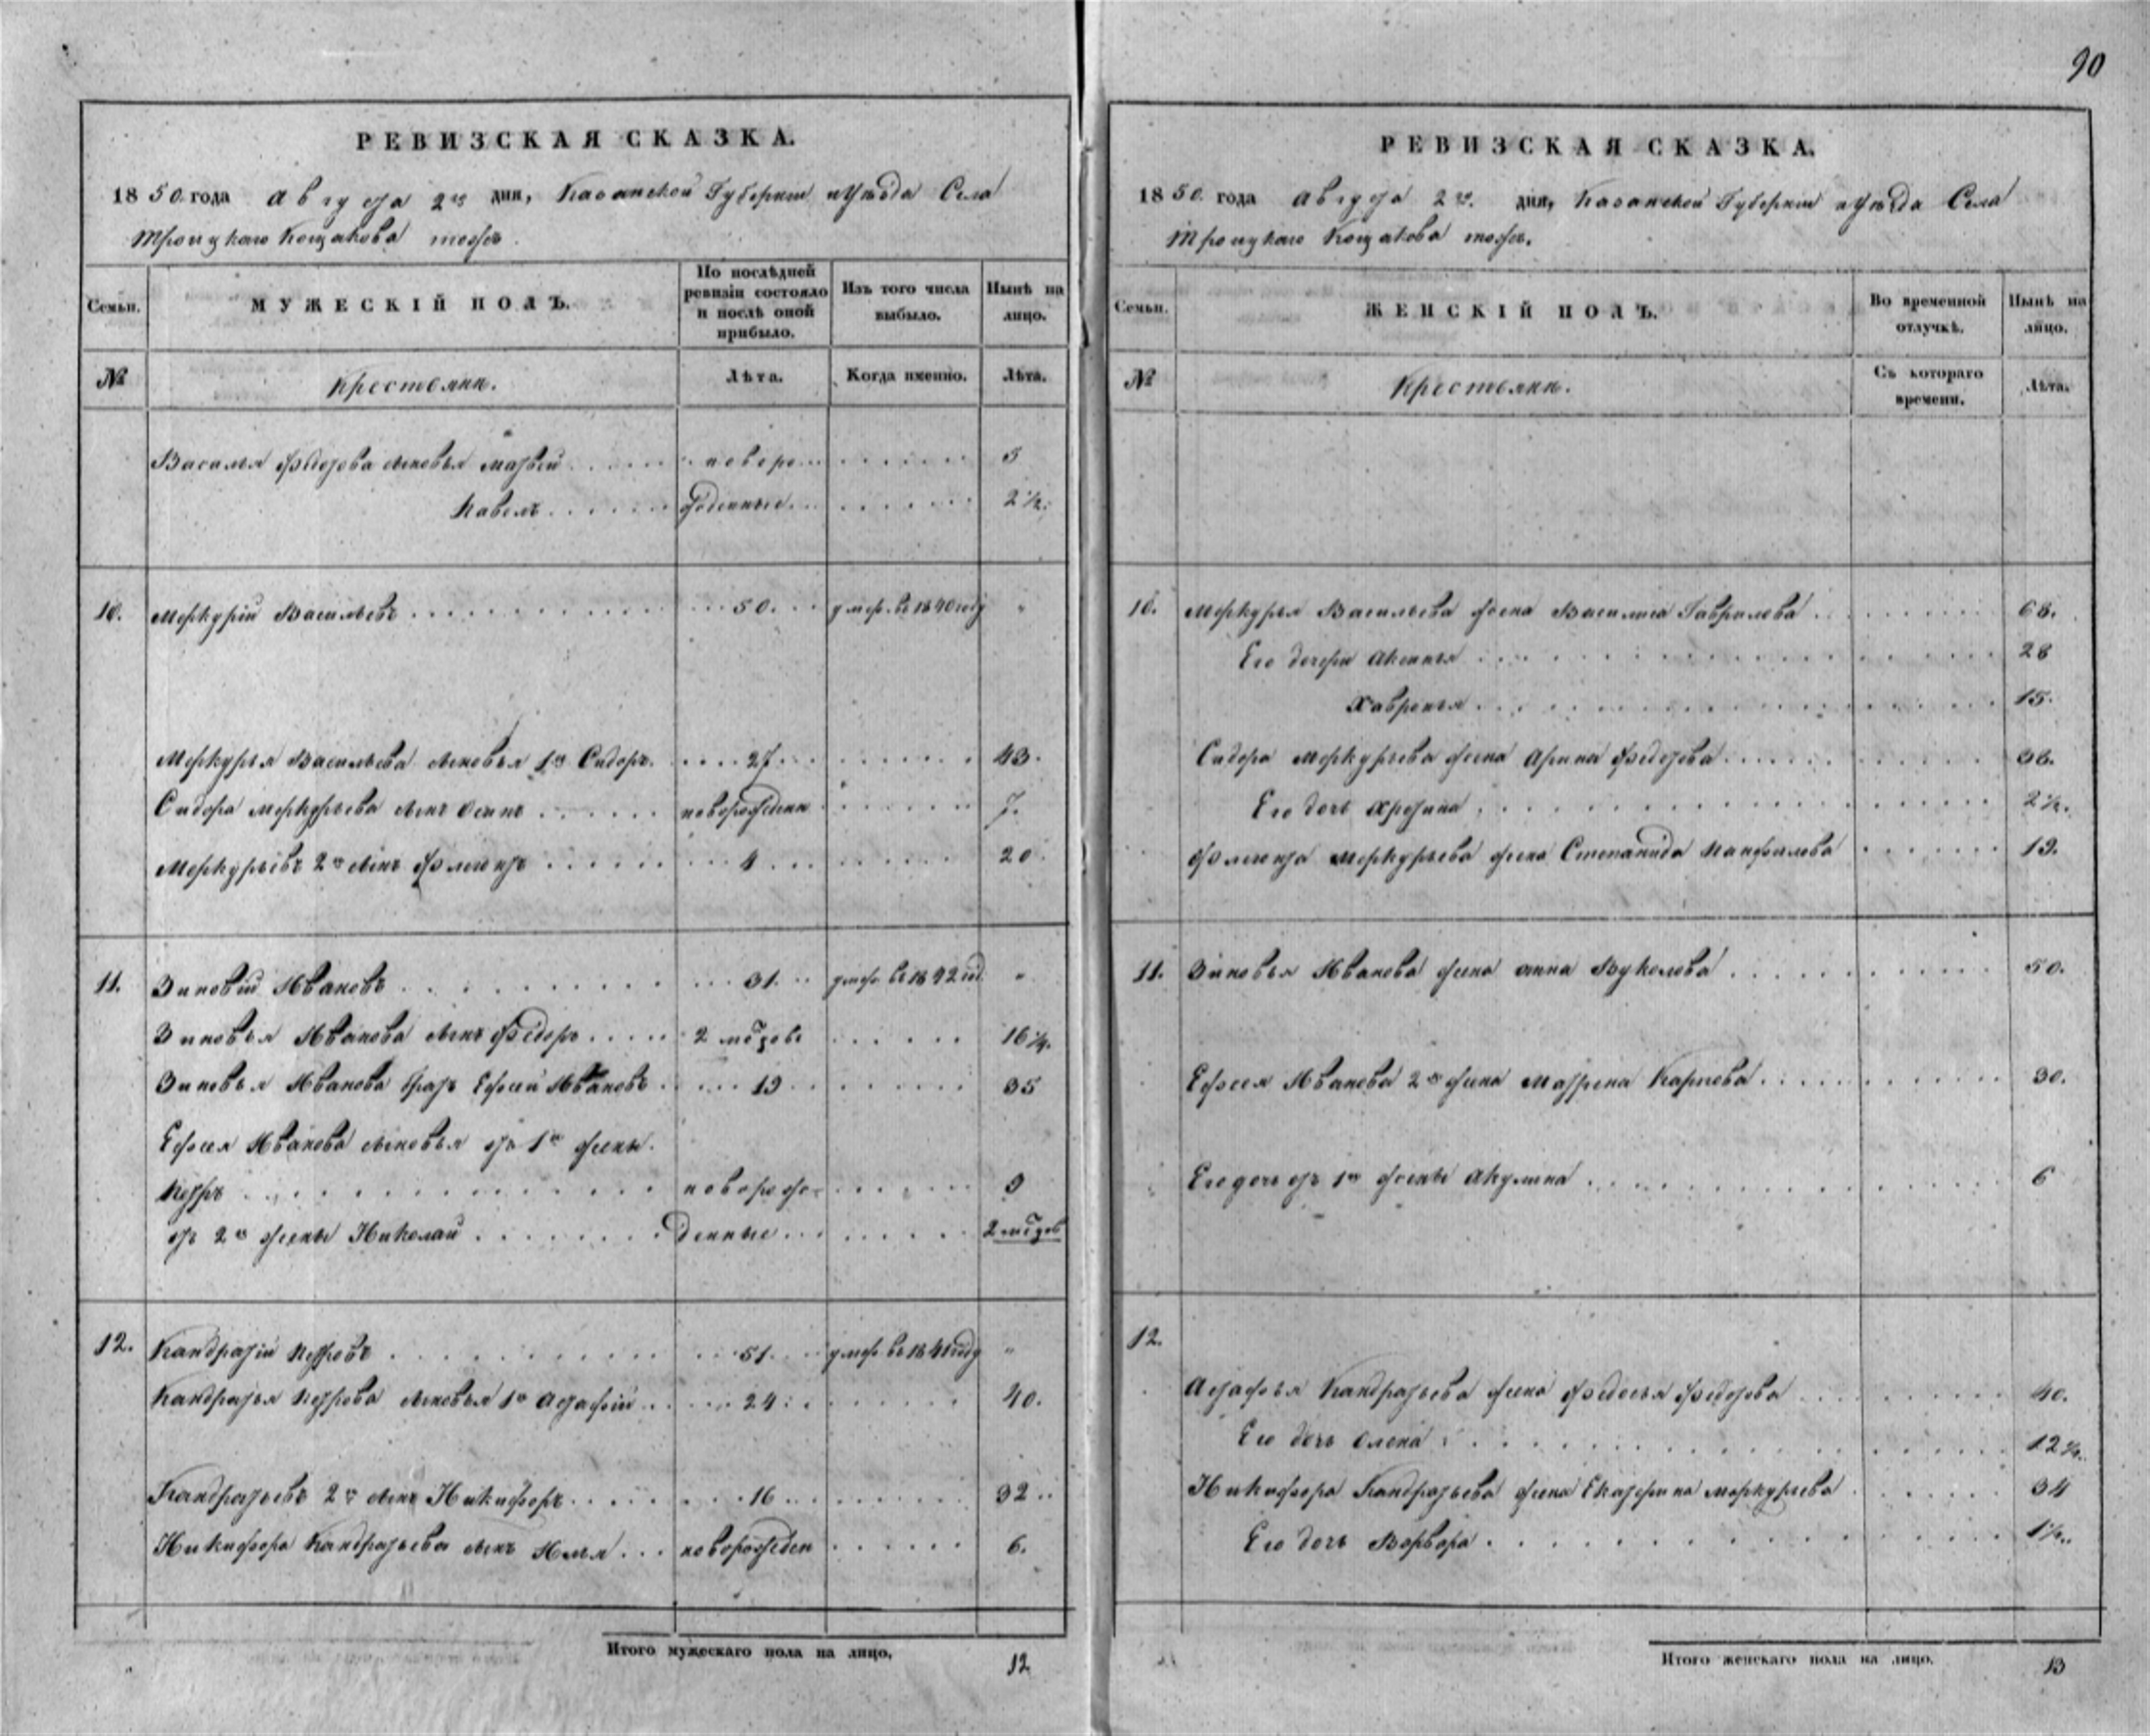 90
РЕВИЗСКАЯ СКАЗКА.
1850 года августа 2го дня, Казанской Губернии и Уѣзда Села
Троицкаго Кощакова тожъ.
Семьи.
МУЖЕСКІЙ ПОЛЪ.
По послѣдней ревизіи состояло и послѣ оной прибыло.
Изъ того числа выбыло.
Нынѣ на лицо.
№
Крестьянъ.
Лѣта.
Когда именно.
Лѣта.
Василья Федорова сыновья Матвей новоро 5
Павелъ жденные 2 ½.
10. Меркурій Васильевъ 50. умеръ въ 1840 году "
Меркурья Васильева сыновья 1й Сидоръ. 27 43.
Сидора Меркурьева сынъ Осипъ новорожденн 7.
Меркурьевъ 2й сынъ Флегонтъ 4 20.
11. Зиновій Ивановъ 31. умеръ въ 1842 год "
Зиновья Иванова сынъ Федоръ 2 месяцовъ 16 ¼.
Зиновья Иванова братъ Ефсей Ивановъ 19 35
Ефсея Иванова сыновья отъ 1й жены.
Петръ новорож- 9
отъ 2й жены Николай денные 2 месяцов
12. Кандратій Петровъ 51. умеръ въ 1841 году "
Кандратья Петрова сыновья 1й Агафій 24 40.
Кандратьевъ 2й сынъ Никифоръ 16 32
Никифора Кандратьева сынъ Илья новорожден 6.
Итого мужескаго пола на лицо. 12
РЕВИЗСКАЯ СКАЗКА.
1850 года августа 2го. дня, Казанской Губернии и Уѣзда Села
Троицкаго Кощакова тожъ.
Семьи.
ЖЕНСКІЙ ПОЛЪ.
Во временной отлучкѣ.
Нынѣ на лицо.
№
Крестьянъ.
Съ котораго времени.
Лѣта.
10. Меркурья Васильева жена Василиса Гаврилова 68.
Его дочери Аксинья 28
Хавронья 15.
Сидора Меркурьева жена Арина Федорова 38.
Его дочь Христина 2 ½.
Флегонта Меркурьева жена Степанида Панфилова 19.
11. Зиновья Иванова жена Анна Вуколова 50.
Ефсея Иванова 2я жена Матрена Карпова 30.
Его дочь отъ 1й жены Акулина 6
12.
Агафья Кандратьева жена Федосья Федотова 40.
Его дочь Олена 12 ½.
Никифора Кандратьева жена Екатерина Меркурьева 34
Его дочь Варвара 1 ½.
Итого женскаго пола на лицо. 13